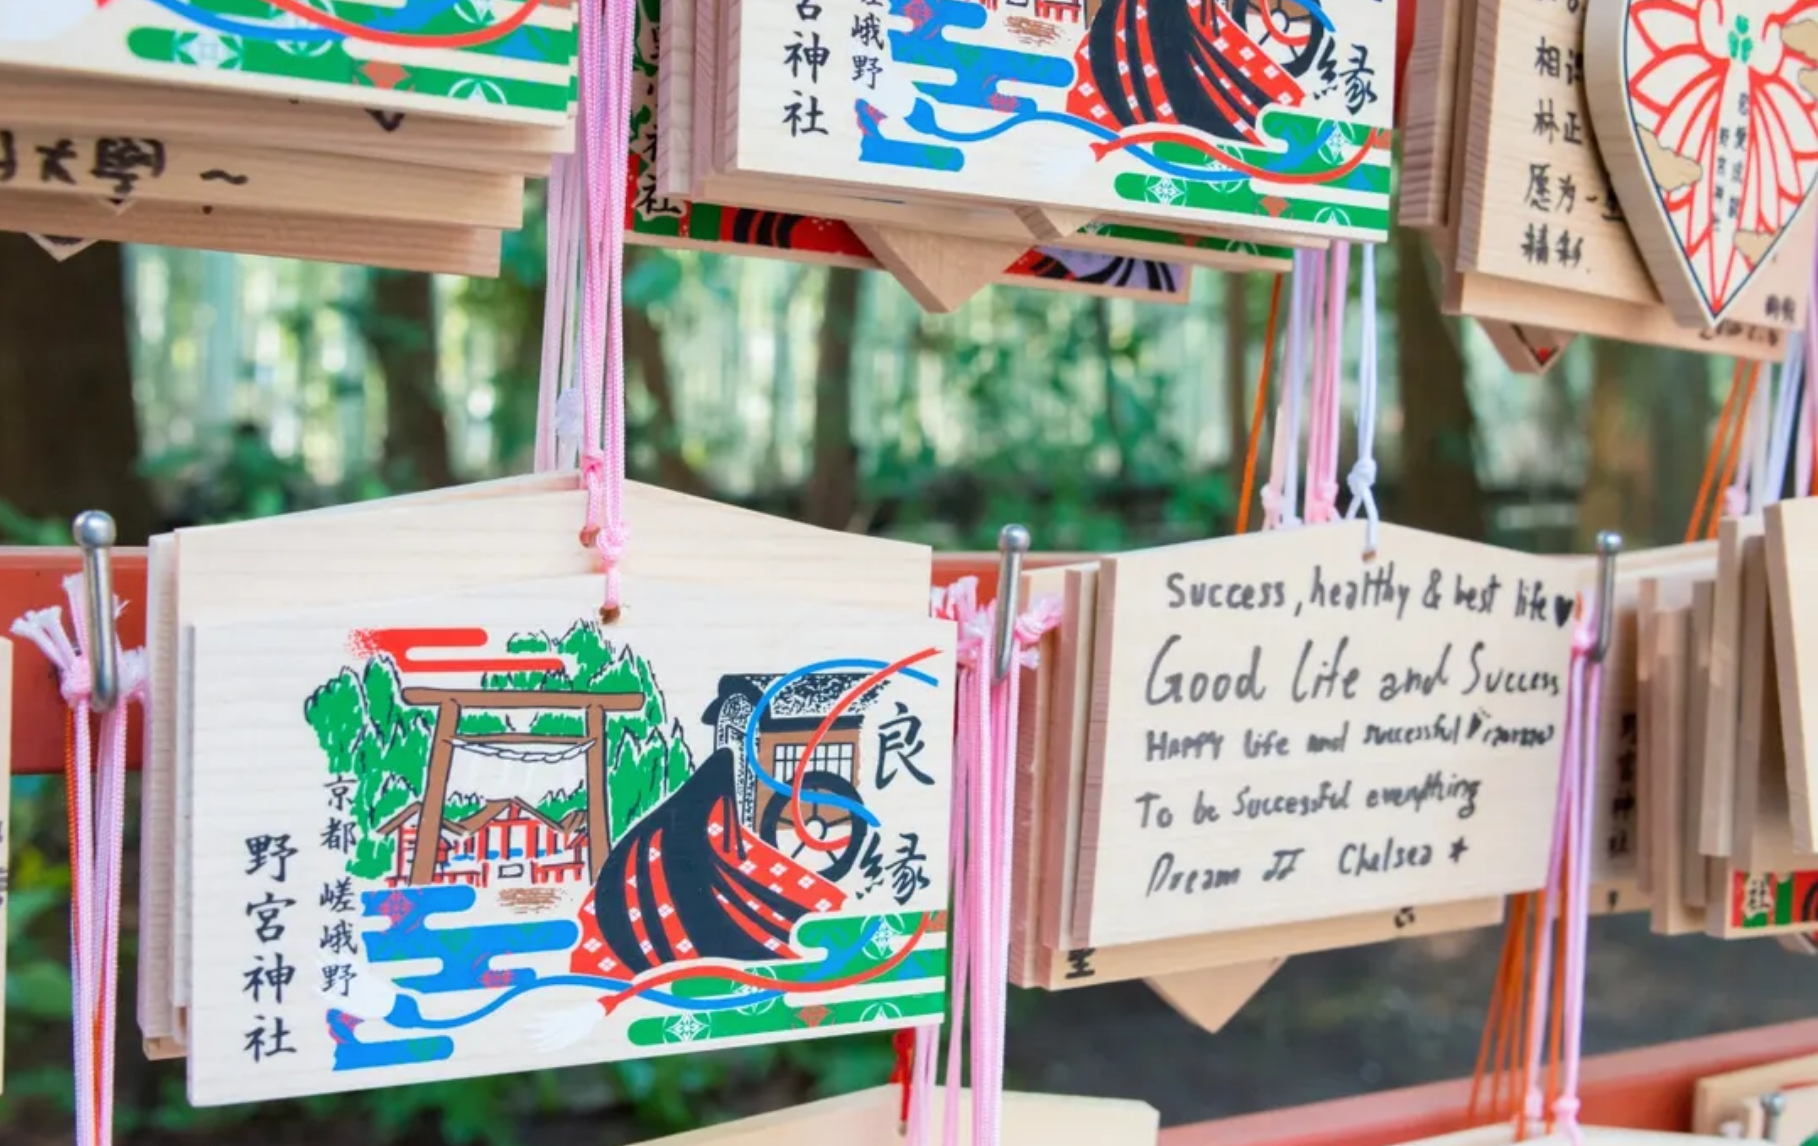 宮神社
嵯峨野
縁
大學~
社
相识
林正
愿为一
良縁
京都 嵯峨野
野宮神社
Success, healthy & best life ♥
Good life and Success
Happy life and successful
To be Successful everything
Dream JJ Chelsea *
社